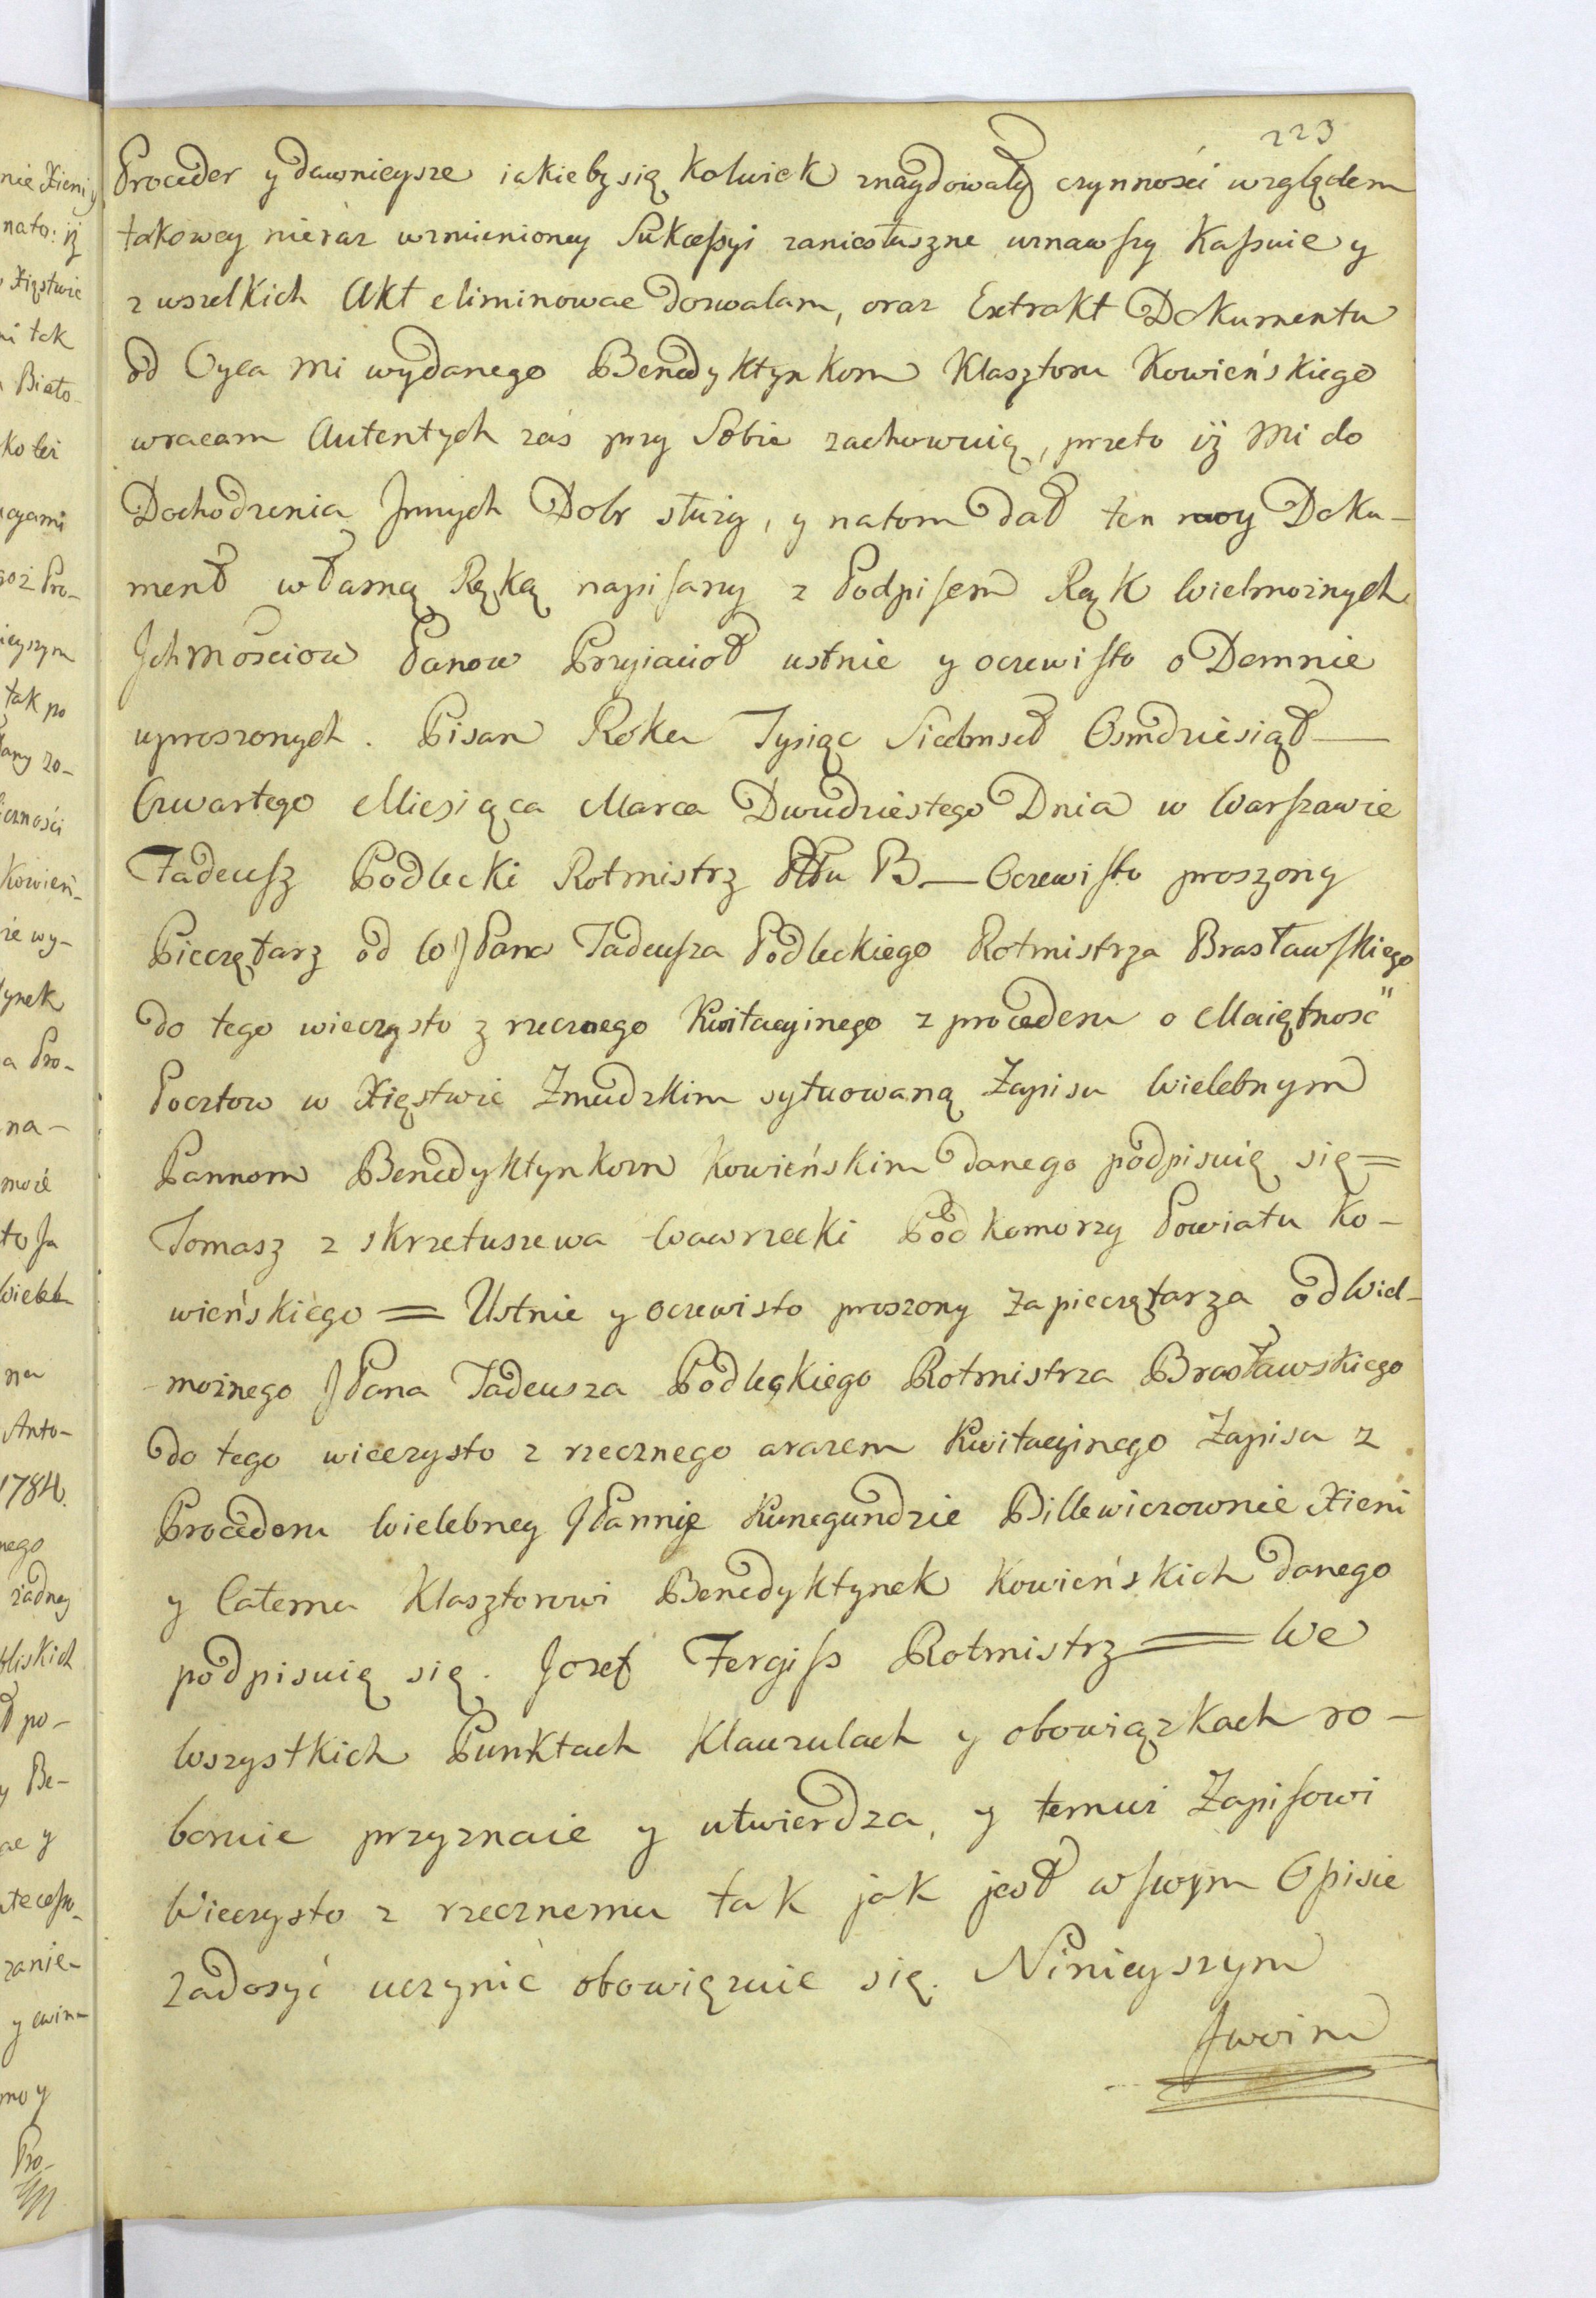 223
Proceder y dawnieysze iakieby się kolwiek znaydowały czynności względem
takowey nieraz wzmienioney Sukceßyi zaniesłuszne uznawszy Kaßuie y
z wszelkich Akt eliminowac dozwalam, oraz Extrakt Dokumentu
od Oyca mi wydanego Benedyktynkom Klasztoru Kowieńskiego
wracam Autentych zas przy Sobie zachowuię, przeto iż mi do
Dochodzenia Innych Dobr służy, y natom dał ten moy Doku-
ment własną Ręką napisany z Podpisem Rąk Wielmożnych
Ichmościow Panow Przyiacioł ustnie y oczewisto o Demnie
uproszonych. Pisan Roku Tysiąc Siedmset Osmdziesiąt
Czwartego Miesiąca Marca Dwudziestego Dnia w Warszawie
Tadeusz Podlecki Rotmistrz Pttu B— Oczewisto proszony
Pieczętarz od W J Pana Tadeusza Podleckiego Rotmistrza Brasławskiego
do tego wieczysto zrzecznego Kwitacyinego z procederu o Maiętnosc
Pocztow w Xięstwie Zmudzkim sytuowaną Zapisu Wielebnym
Pannom Benedyktynkom Kowieńskim danego podpisuię się =
Tomasz z Skrzetuszewa Wawrzecki Podkomorzy Powiatu Ko-
wieńskiego = Ustnie y oczewisto proszony za pieczętarza od Wiel-
możnego J Pana Tadeusza Podleckiego Rotmistrza Brasławskiego
do tego wieczysto zrzecznego arazem Kwitacyinego Zapisu z
Procederu Wielebney J Pannie Kunegundzie Billewiczownie Xieni
y Całemu Klasztorowi Benedyktynek Kowieńskich danego
podpisuię się. Jozef Fergiß Rotmistrz = We
Wszystkich Punktach Klauzulach y obowiązkach ro-
bornie przyznaie y utwierdza, y temuż Zapisowi
Wieczysto zrzecznemu tak jak jest w swym Opisie
zadosyć uczynić obowięzuie się. Ninieyszym